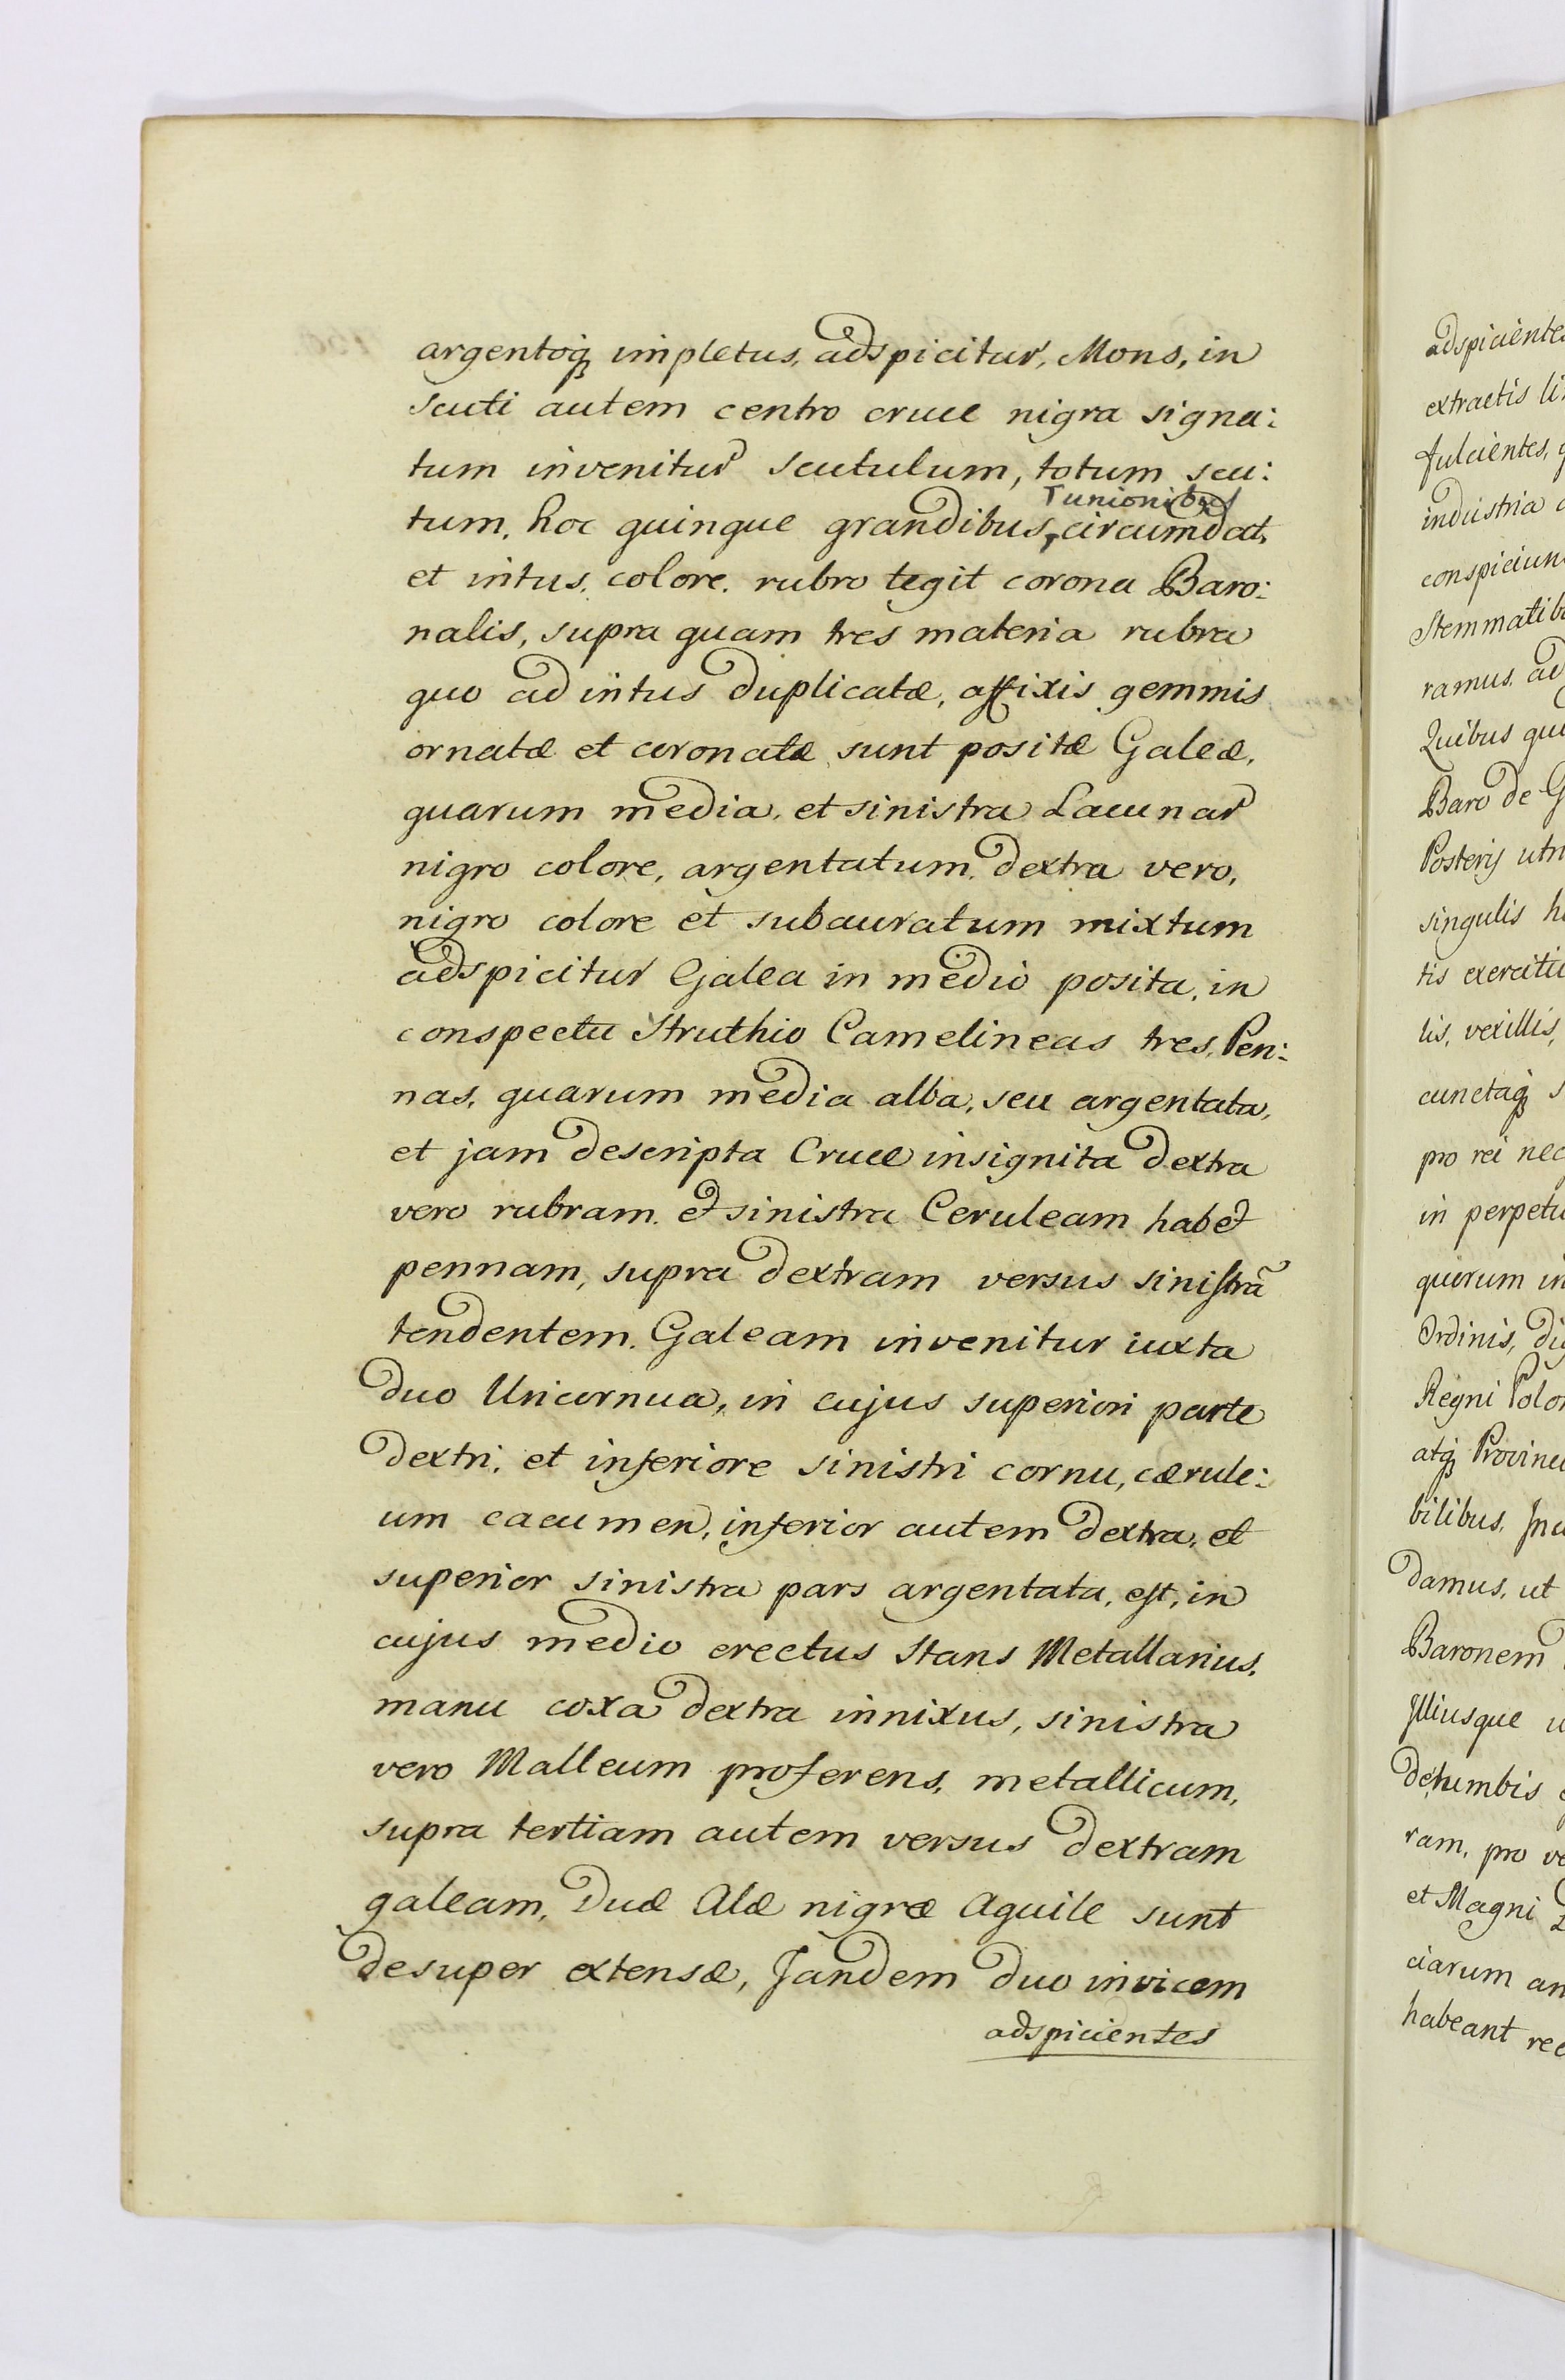 argentoq impletus, adspicitur, Mons, in
scuti autem centro cruce nigra signa:
tum invenitur scutulum, totum scu:
Tunionibus
tum, hoc quinque grandibus, circumdat,
et intus, colore. rubro tegit corona Baro:
nalis, supra quam tres materia rubra
quo ad intus duplicatæ, affixis gemmis
ornatæ et coronatæ sunt positæ Galeæ,
quarum media, et sinistra Lacunar
nigro colore, argentatum, dextra vero,
nigro colore et subauratum mixtum
adspicitur Galea in medio posita, in
conspectu Struthio Camelineas tres, Pen:
nas, quarum media alba, seu argentata,
et jam descripta Cruce insignita dextra
vero rubram. et sinistra Ceruleam habet
pennam, supra dextram versus sinistrã
tendentem. Galeam invenitur iuxta
duo Unicornua, in cujus superiori parte
dextri, et inferiore sinistri cornu, cærule:
um cacumen, inferior autem dextra, et
superior sinistra pars argentata, est, in
cujus medio erectus stans Metallarius,
manu coxa dextra innixus, sinistra
vero Malleum proferens, metallicum,
supra tertiam autem versus dextram
galeam, Duæ Alæ nigræ Aquile sunt
desuper extensæ, Tandem duo invicem
adspicientes
adspiciente
extractis li
fulcientes,
industria
conspiciun
Stemmatib
ramus. ad
Quibus qui
Baro de G
Posterij utri
singulis h
tis exercitu
lis, vexillis,
cunctaq s
pro rei nec
in perpetu
quorum in
Ordinis, dig
Regni Polon
atq Provinci
bilibus, Inc
damus, ut
Baronem
Illiusque u
de lumbis
ram, pro ve
et Magni
ciarum an
habeant rec